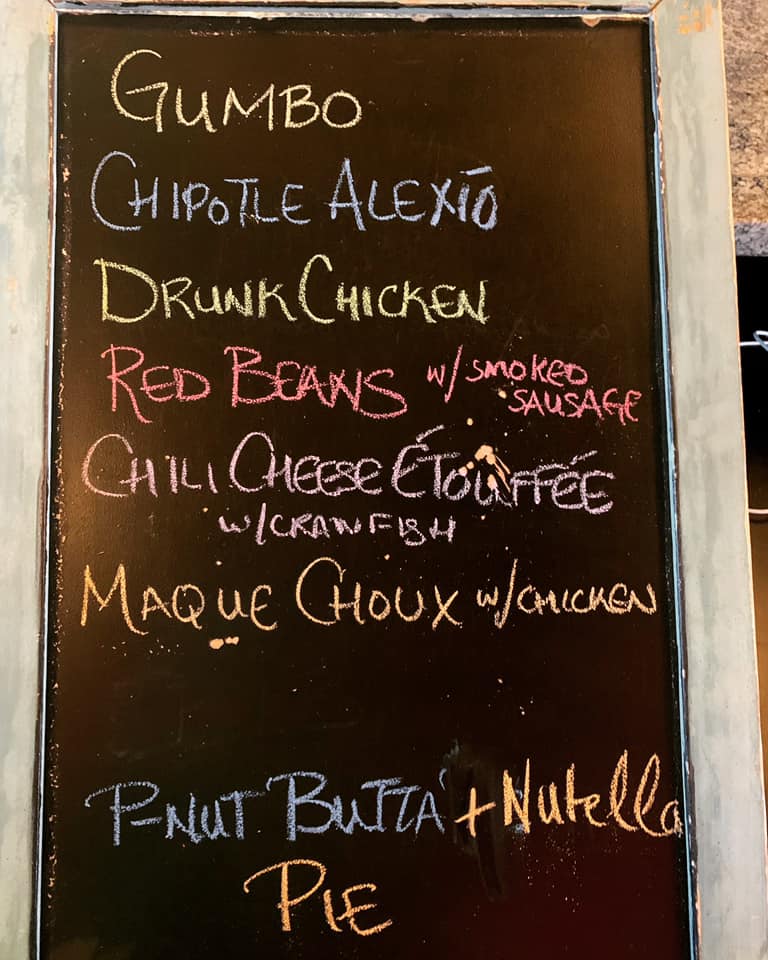 GUMBO
CHIPOTLE ALEXIO
DRUNK CHICKEN
RED BEANS w/ SMOKED
SAUSAGE
CHILI CHEESE ÉTOUFFÉE
w/CRAWFISH
MAQUE CHOUX w/CHICKEN
P-NUT BUTTA' + Nutella
PIE